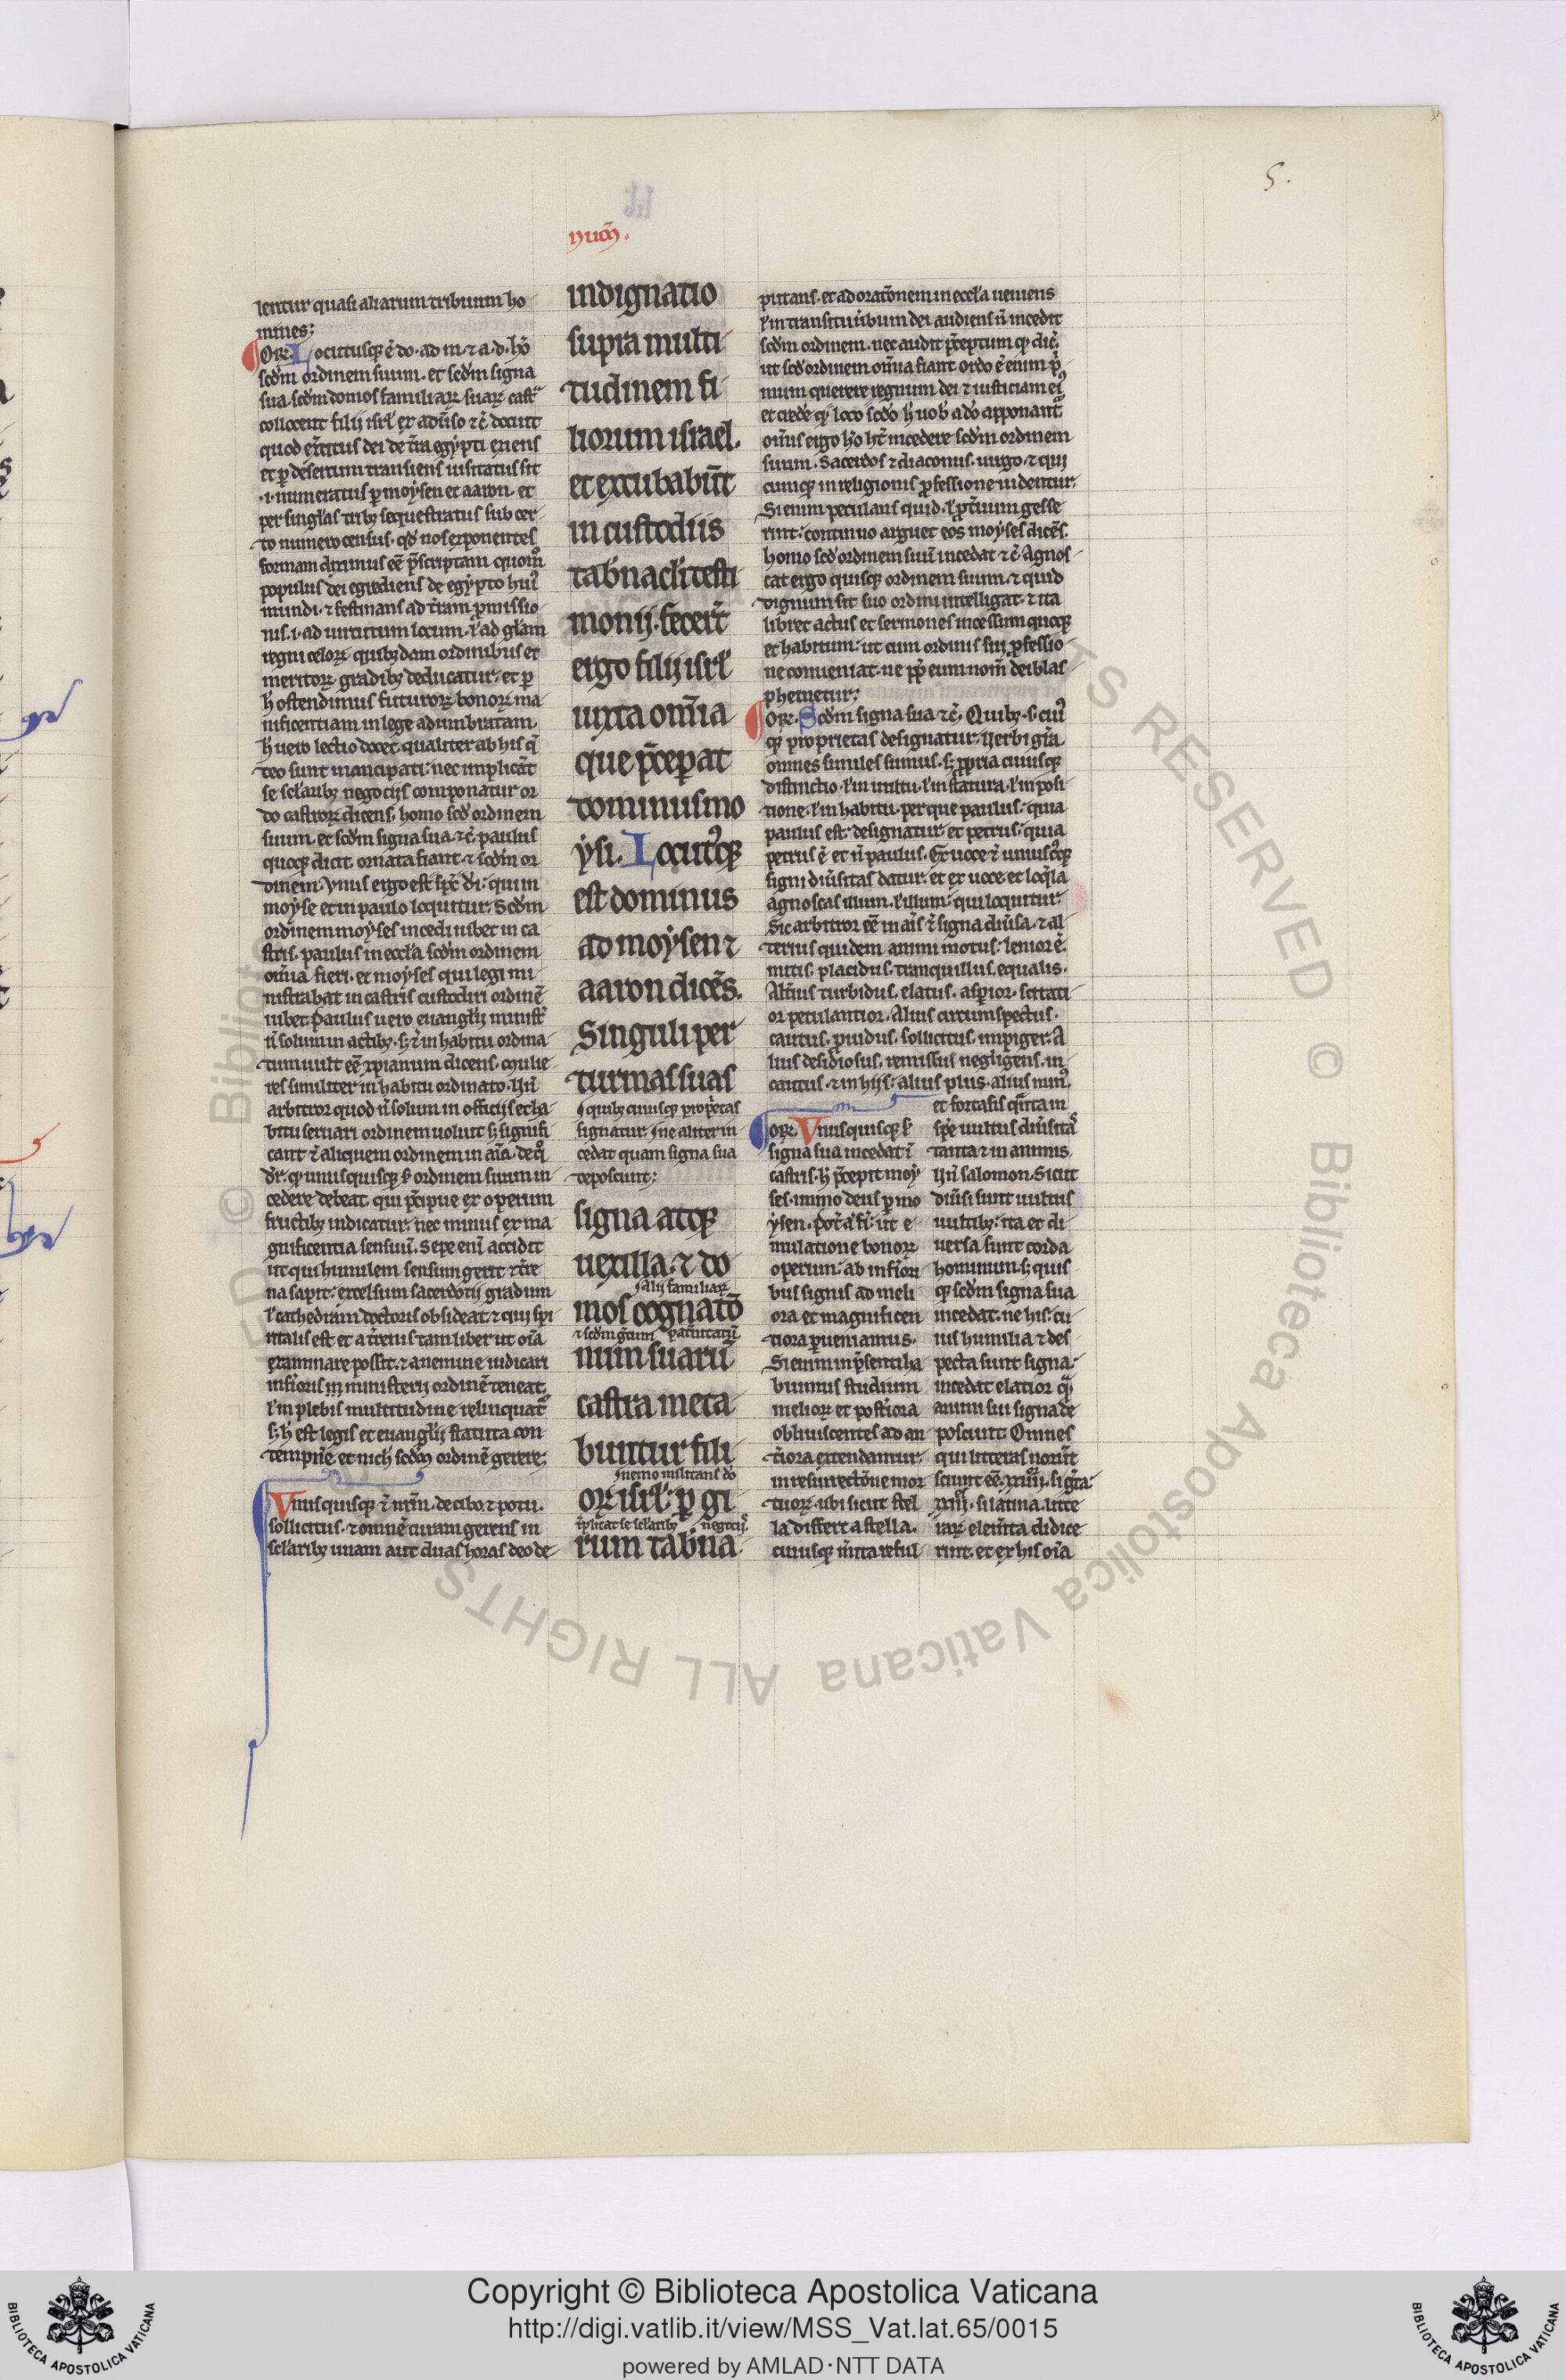 5.
nuō.
lentur quasi aliarum tribuum ho
mines;
OR. Locutusq; ē do. ad m. ⁊ a. d. hō
scdm ordinem suum. et scdm signa
sua. scdm domos familiaꝝ suaꝝ castͣ
collocent filij isrl̓ ex adūso ⁊ c̄. docuit
et ꝑ desertum transiens uisitatus sit
.i. numeratus ꝑ moysen et aaron. et
per singl̓as tribꝫ sequestratus sub cer
to numero census. qd̓ nos exponentes
populus dei egrediens de egypto huiꝰ
mundi. ⁊ festinans ad t̓ram ꝓmissio
nis. i. ad uirtutum locum. ł ad gl̓am
regni celoꝝ quibꝫdam ordinibus et
meritoꝝ gradibꝫ deducatur. et ꝑ
h̓ ostendimus futuroꝝ bonoꝝ ma
nificentiam in lege adumbratam.
h̓ uero lectio docet. qualiter ab his q̄
deo sunt mancipati: nec implicāt
se scl̓aribꝫ negocijs componatur or
do castroꝝ dicens. homo scd̓ ordinem
suum. et scdm signa sua. ⁊ c̄. paulus
quoq; dicit. omnia fiant. ⁊ scdm or
dinem. Vnus ergo est sp̄c d̓i: qui in
moyse et in paulo loquitur. Scdm
ordinem moyses incedi iubet in ca
stris. paulus in eccl̓a scdm ordinem
om̄ia fieri. et moyses qui legi mi
nistrabat in castris custodiri ordinē
iubet. Paulus uero euangl̓ij ministͬ
n̄ solum in actibꝫ. sꝫ ⁊ in habitu ordina
tum uult eē xp̄ianum dicens. Mulie
res similiter in habitu ordinato. Hij̄
arbitror quod n̄ solum in officijs et ha
bitu seruari ordinem uoluit sꝫ signifi
cant ⁊ aliquem ordinem in aīa. de qͦ
dr̄. qͥ unusquisq; ẜ ordinem suum in
cedere debeat. qui p̄cipue ex operum
fructibꝫ indicatur. nec minus ex ma
gnificentia sensuū. Sepe enī accidit
ut qui humilem sensum gerit ⁊ t̓re
na sapit: excelsum sacerdotij gradum
ł cathedram doctoris obsideat. ⁊ qui spi
italis est et a t̓renis tam liber ut oīa
examinare possit. ⁊ a nemine iudicari
inf̓ioris ministerij ordinē teneat.
ł in plebis multitudine relinquatͬ
sꝫ h̓ est legis et euangl̓ij statuta con
tempnē. et nich̓ scdm ordinē gerere;
Vnusquisq; ⁊ nr̄m. de cibo. ⁊ potu.
sollicitus. ⁊ omnē curam gerens in
scl̓aribꝫ unam aut duas horas deo de
indignatio
supra multi
tudinem fi
liorum israel.
et excubabūt
in custodiis
tab̓nac̓li testi
monij. Fecer̄t
ergo filij isrl̓
iuxta om̄ia
que p̄ceperat
dominus mo
ysi. Locutꝰq;
est dominus
ad moysen ⁊
aaron dicēs.
Singuli per
turmas suas
quibꝫ cuiusq; prop̓etas
signatur. ne aliter in
cedat quam signa sua
deposcunt;
signa atq;
uexilla. ⁊ do
alij familiaꝝ
mos cognatō
num suarū
castra meta
buntur fili
nemo militans dō
oꝝ isrl̓. ꝑ gi
īplicat se scl̓aribꝫ negocijs
rum tab̓na
putans. et ad oratōnem in eccl̓a ueniens
ł in transitu ūbum dei audiens n̄ incedit
scdm ordinem. nec audit p̄ceptum qͥ dic̄.
ut scd̓ ordinem om̄ia fiant. ordo ē enim pͥ
mum querere regnum dei ⁊ iusticiam eiꝰ
om̄is ergo hō hꝫ incedere scdm ordinem
suum. Sacerdos ⁊ diaconus. uirgo. ⁊ qui
cumq; in religionis ꝓfessione uidentur.
rint: continuo arguet eos moyses dicēs.
homo scd̓ ordinem suū incedat ⁊ c̄. Agnos
cat ergo quisq; ordinem suum. ⁊ quid
dignum sit suo ordini intelligat. ⁊ ita
libret actus et sermones incessum quoq;
et habitum: ut cum ordinis sui ꝓfessio
ne conueniat. ne ꝓp̄ eum nom̄ dei blas
phemetur;
OR. Scdm signa sua ⁊ c̄. Quibꝫ. s. cuiꝰ
q; proprietas designatur. Verbi gr̄a
omnes similes sumus. sꝫ ꝓpria cuiusq;
distinctio. ł in uultu. ł in statura. ł in posi
tione. ł in habitu. per que paulus: quia
paulus est: designatur. et petrus: quia
petrus ē et n̄ paulus.
signi diūsitas datur. et ex uoce et loq̄la
agnoscas illum. ł illum: qui loquitur.
Sic arbitror eē in aīs ⁊ signa diūsa. ⁊ al
terius quidem animi motus: lenior ē.
mitis. placidus. tranquillus. equalis.
Alt̓ius turbidus. elatus. asp̓ior. scitati
or petulantior. Alius circumspectus.
cautus. ꝓuidus. sollicitus. impiger. A
lius desidiosus. remissus negligens. in
cautus. ⁊ in hijs: alius plus. alius minꝰ.
OR. Vnusquisq; ẜ
signa sua incedat ī
castris. h̓ p̄cepit moy
ses. immo deus ꝑ mo
mulatione bonoꝝ
operum: ab inf̓iori
bus signis ad meli
ora et magnificen
tiora ꝑueniamus.
Si enim in p̄senti ha
bemus studium
melioꝝ et post̓iora
obliuiscentes ad an
t̓iora extendamur:
in resurrectōne mor
tuoꝝ. ubi sicut stel
la differt a stella.
cuiusq; m̄ita reful
et fortasis q̄ntam
tanta ⁊ in animis.
Hīj̄ salomon. Sicut
diūsi sunt uultus
uultibꝫ: ita et di
uersa sunt corda
hominum. sꝫ quis
q; scdm signa sua
incedat. ne his: cu
ius humilia ⁊ des
pecta sunt signa:
incedat elatior qͣꝫ
animi sui signa de
poscunt. Omnes
qui litteras norūt
rint. et ex his oīa
Copyright © Biblioteca Apostolica Vaticana
http://digi.vatlib.it/view/MSS_Vat.lat.65/0015
powered by AMLAD·NTT DATA
BIBLIOTECA APOSTOLICA VATICANA
BIBLIOTECA APOSTOLICA VATICANA
© Biblioteca Apostolica Vaticana ALL RIGHTS RESERVED